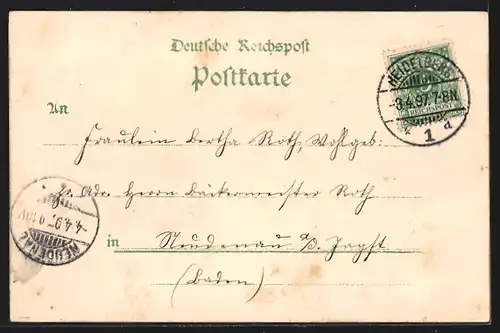 Deutsche Reichspost
Postkarte
HEIDELBERG
-3.4.97.7-8N.
1 a
REICHSPOST
An
Fräulein Bertha Roth, Wohlgeb:
Adr. Herrn Bäckermeister Roth
in Neudenau a/d. Jagst
(Baden)
NEUDENAU
-4.4.97.